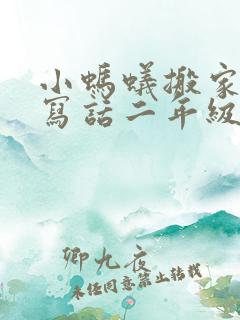 小螞蟻搬家
寫話二年級
卿九夜
未經同意禁止轉載